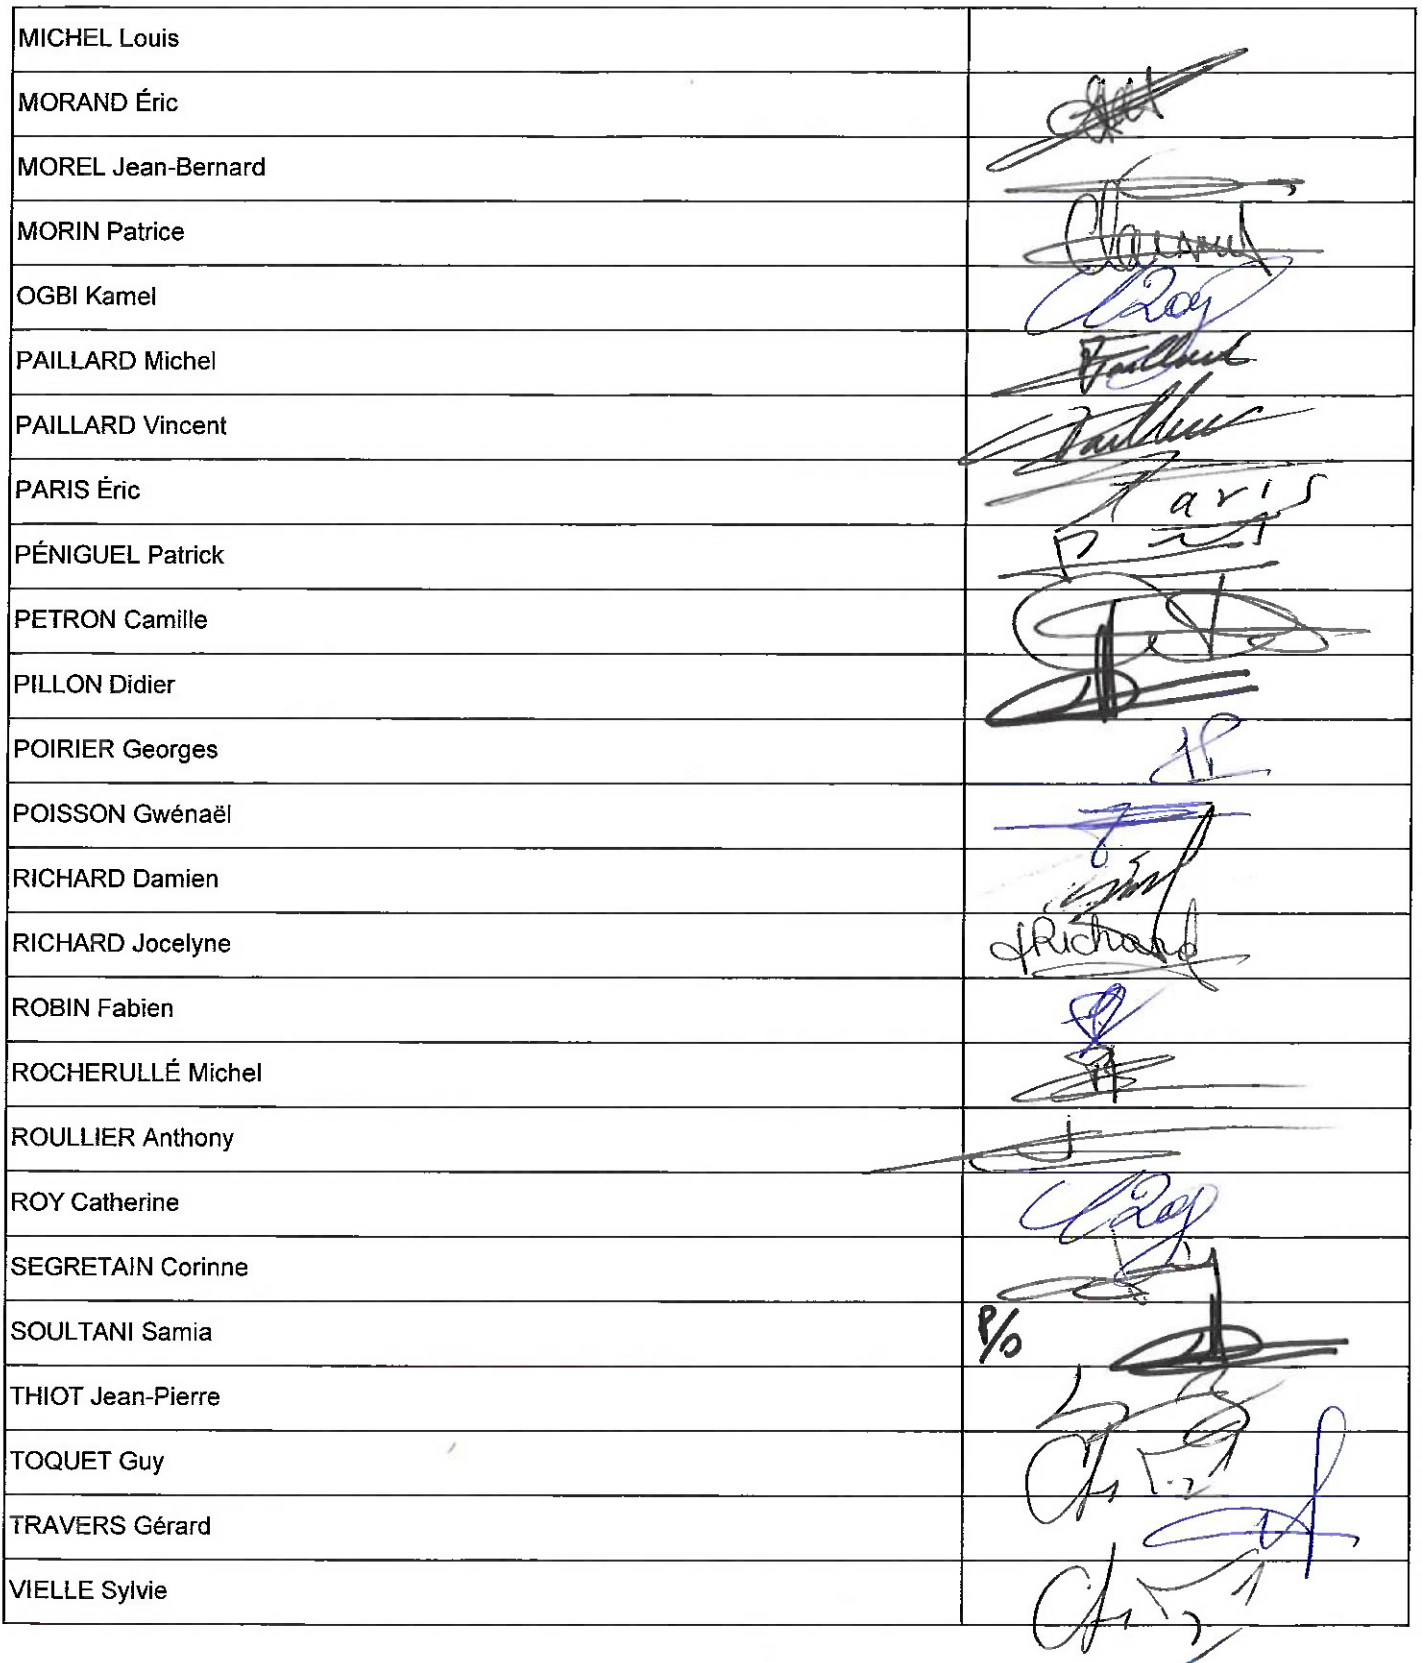 MICHEL Louis
MORAND Éric
MOREL Jean-Bernard
MORIN Patrice
OGBI Kamel
PAILLARD Michel
PAILLARD Vincent
PARIS Éric
Paris
PÉNIGUEL Patrick
PETRON Camille
PILLON Didier
POIRIER Georges
POISSON Gwénaël
RICHARD Damien
RICHARD Jocelyne
JRichard
ROBIN Fabien
ROCHERULLÉ Michel
ROULLIER Anthony
ROY Catherine
SEGRETAIN Corinne
SOULTANI Samia P/o
THIOT Jean-Pierre
TOQUET Guy
TRAVERS Gérard
VIELLE Sylvie